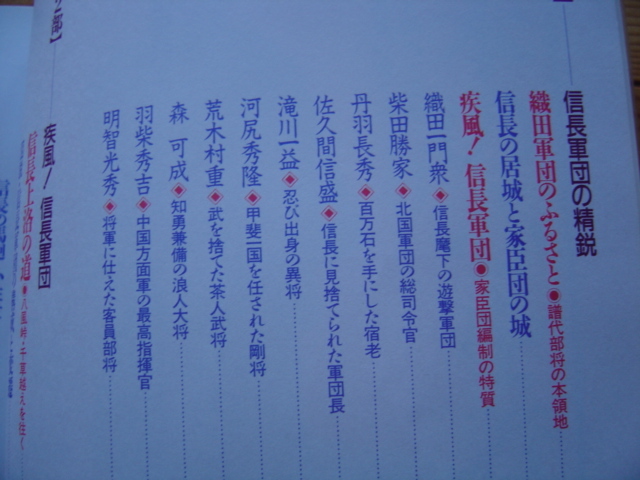 信長軍団の精鋭
織田軍団のふるさと●譜代部将の本領地
信長の居城と家臣団の城
疾風!信長軍団●家臣団編制の特質
織田一門衆◈信長麾下の遊撃軍団
柴田勝家◈北国軍団の総司令官
丹羽長秀◈百万石を手にした宿老
佐久間信盛◈信長に見捨てられた軍団長
滝川一益◈忍び出身の異将
河尻秀隆◈甲斐一国を任された剛将
荒木村重◈武を捨てた茶人武将
森 可成◈知勇兼備の浪人大将
羽柴秀吉◈中国方面軍の最高指揮官
明智光秀◈将軍に仕えた客員部将
疾風!信長軍団
信長上洛の道●八風峠・千草越えを往く